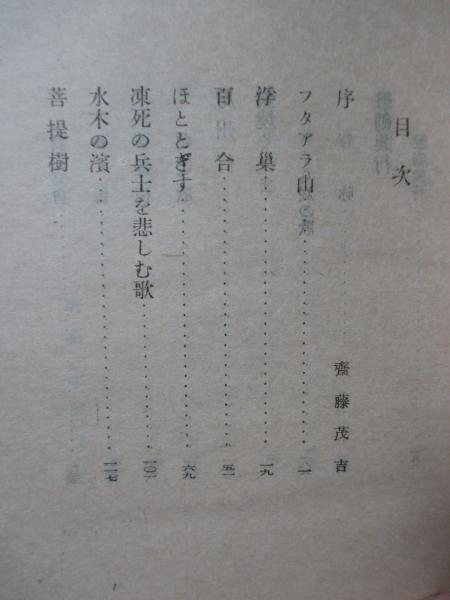 目次
序……齋藤茂吉
フタアラ山……一
浮巢……一九
百合……五一
ほととぎす……六九
凍死の兵士を悲しむ歌……一〇一
水木の濱……一一七
菩提樹